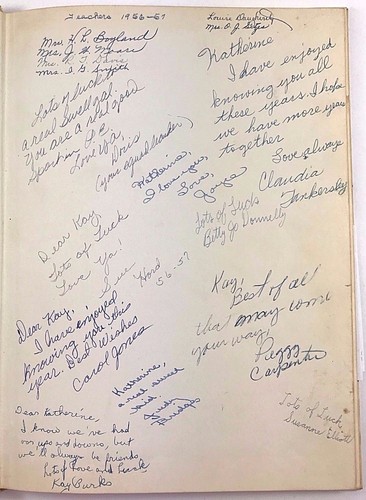 Teachers 1956-57
Mrs. H. L. Bogland
Mrs. J. H. Moore
Mrs. R. T. Davis
Mrs. I. G. Smith
Louise Daugherty
Mrs. O. J. Gates
Lots of luck to
a real swell gal.
You are a real good
Spartan P.E.
Love Ya,
Doris
(your squad leader)
Katherine
I have enjoyed
knowing you all
these years. I hope
we have more years
together
Love always
Claudia
Tankersley
Katherine,
I love you,
Love,
Joyce
Lots of Luck
Betty Jo Donnelly
Dear Kay,
Lots of Luck
Love Ya!
Sue
Hord
56-57
Dear Kay,
I have enjoyed
knowing you this
year. Best Wishes
Carol Jones
Kay,
Best of all
may come
your way,
Peggy
Carpenter
Katherine,
a real sweet
Judy
Bridges
Lots of Luck,
Susanne Elliott
Dear Katherine,
I know we've had
our ups and downs, but
we'll always be friends
Lots of Love and Luck
Kay Burks